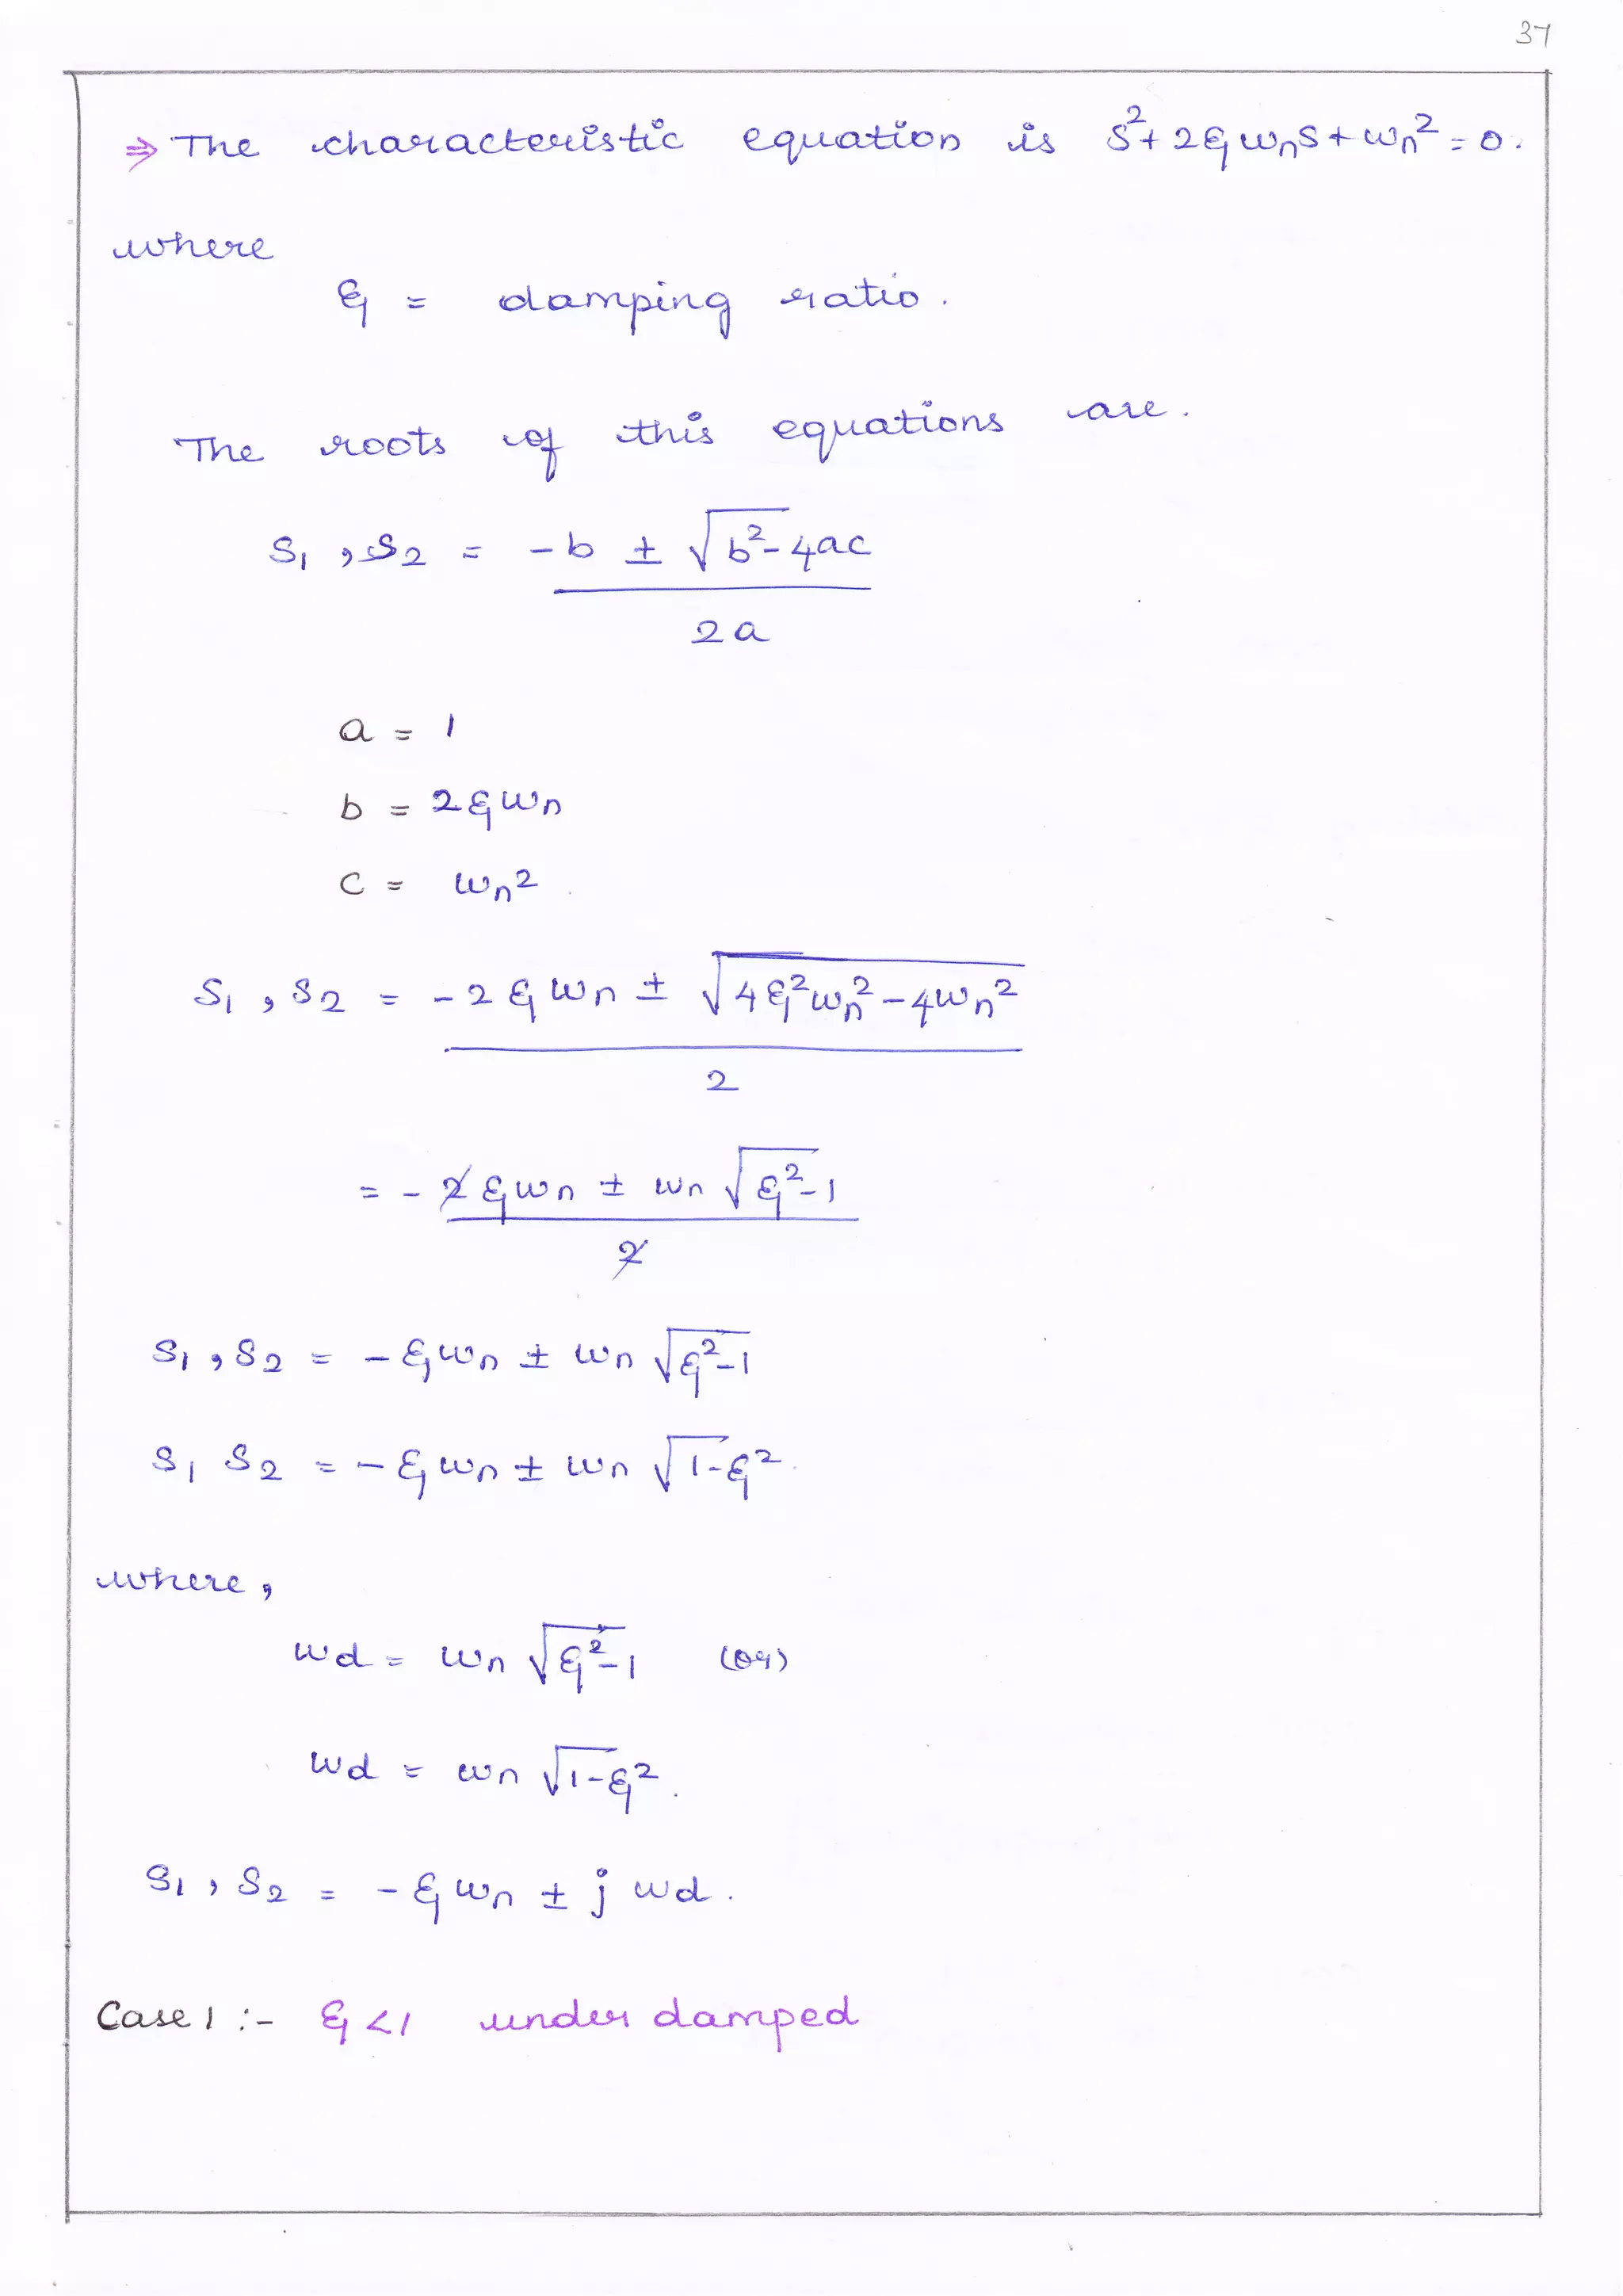 37
⇒ The characteristic equation is S²+ 2ξωnS + ωn² = 0.
where
ξ = damping ratio.
The roots of this equations are.
S₁ , S₂ = -b ± √b²-4ac
2a
a = 1
b = 2ξωn
c = ωn²
S₁ , S₂ = -2ξωn ± √4ξ²ωn² - 4ωn²
2
= - 2ξωn ± ωn √ξ²-1
2
S₁ , S₂ = - ξωn ± ωn √ξ²-1
S₁ S₂ = - ξωn ± ωn √1-ξ²
where ,
ωd = ωn √ξ²-1 (or)
ωd = ωn √1-ξ² .
S₁ , S₂ = - ξωn ± j ωd .
Case 1 :- ξ < 1 under damped